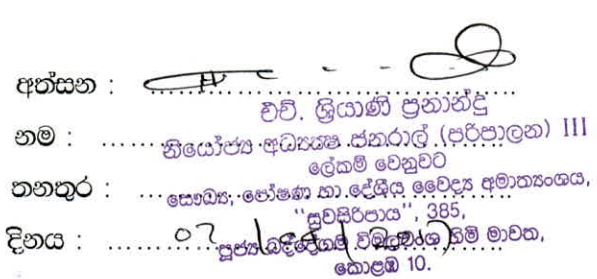 අත්සන :
එච්. ශ්‍රියාණි ප්‍රනාන්දු
නම :
නියෝජ්‍ය අධ්‍යක්ෂ ජනරාල් (පරිපාලන) III
ලේකම් වෙනුවට
තනතුර :
සෞඛ්‍ය, පෝෂණ හා දේශීය වෛද්‍ය අමාත්‍යංශය,
"සුවසිරිපාය", 385,
දිනය :
පූජ්‍ය බද්දේගම විමලවංශ හිමි මාවත,
කොළඹ 10.